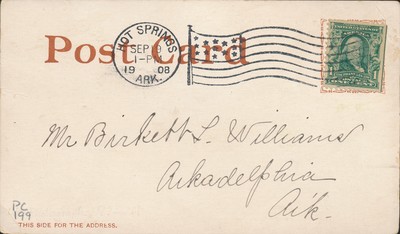 Post Card
HOT SPRINGS
SEP 9
1-P
1908
ARK.
1
Mr Birkett L. Williams
Arkadelphia
Ark.
PC
199
THIS SIDE FOR THE ADDRESS.